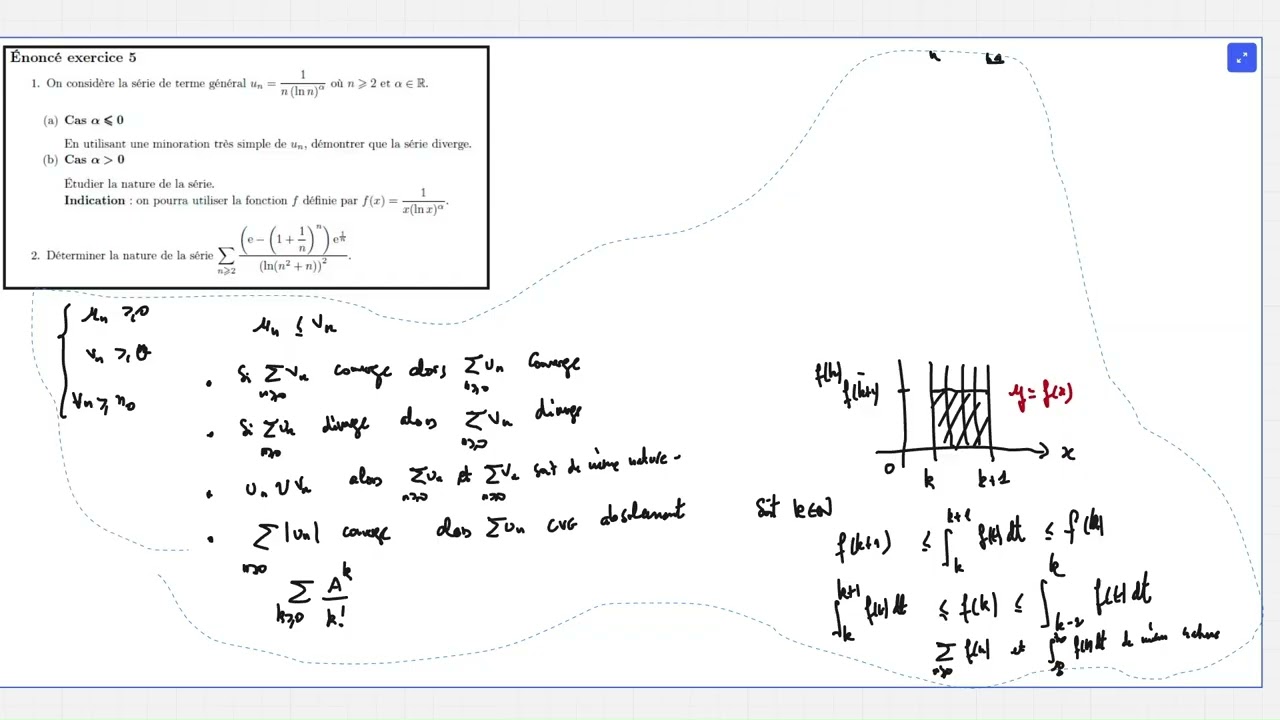 Énoncé exercice 5
1. On considère la série de terme général uₙ = 1/(n (ln n)^α) où n ⩾ 2 et α ∈ ℝ.
(a) Cas α ⩽ 0
En utilisant une minoration très simple de uₙ, démontrer que la série diverge.
(b) Cas α > 0
Étudier la nature de la série.
Indication : on pourra utiliser la fonction f définie par f(x) = 1/(x(ln x)^α).
2. Déterminer la nature de la série ∑_{n⩾2} ((e − (1 + 1/n)^n) e^{1/n})/(ln(n² + n))².
uₙ ≥ 0
vₙ ≥ 0
∀n ≥ n₀
uₙ ≤ vₙ
• Si ∑_{n≥0} vₙ converge alors ∑_{n≥0} uₙ converge
• Si ∑_{n≥0} uₙ diverge alors ∑_{n≥0} vₙ diverge
• uₙ ~ vₙ alors ∑_{n≥0} uₙ et ∑_{n≥0} vₙ sont de même nature.
• ∑_{n≥0} |uₙ| converge alors ∑ uₙ CVG absolument
∑_{k≥0} A^k/k!
f(k)
f(k+1)
y = f(x)
0 k k+1 x
Soit k ∈ ℕ
f(k+1) ≤ ∫_k^{k+1} f(t) dt ≤ f(k)
∫_k^{k+1} f(t) dt ≤ f(k) ≤ ∫_{k-1}^k f(t) dt
∑_{n≥0} f(n) et ∫ f(t) dt de même nature